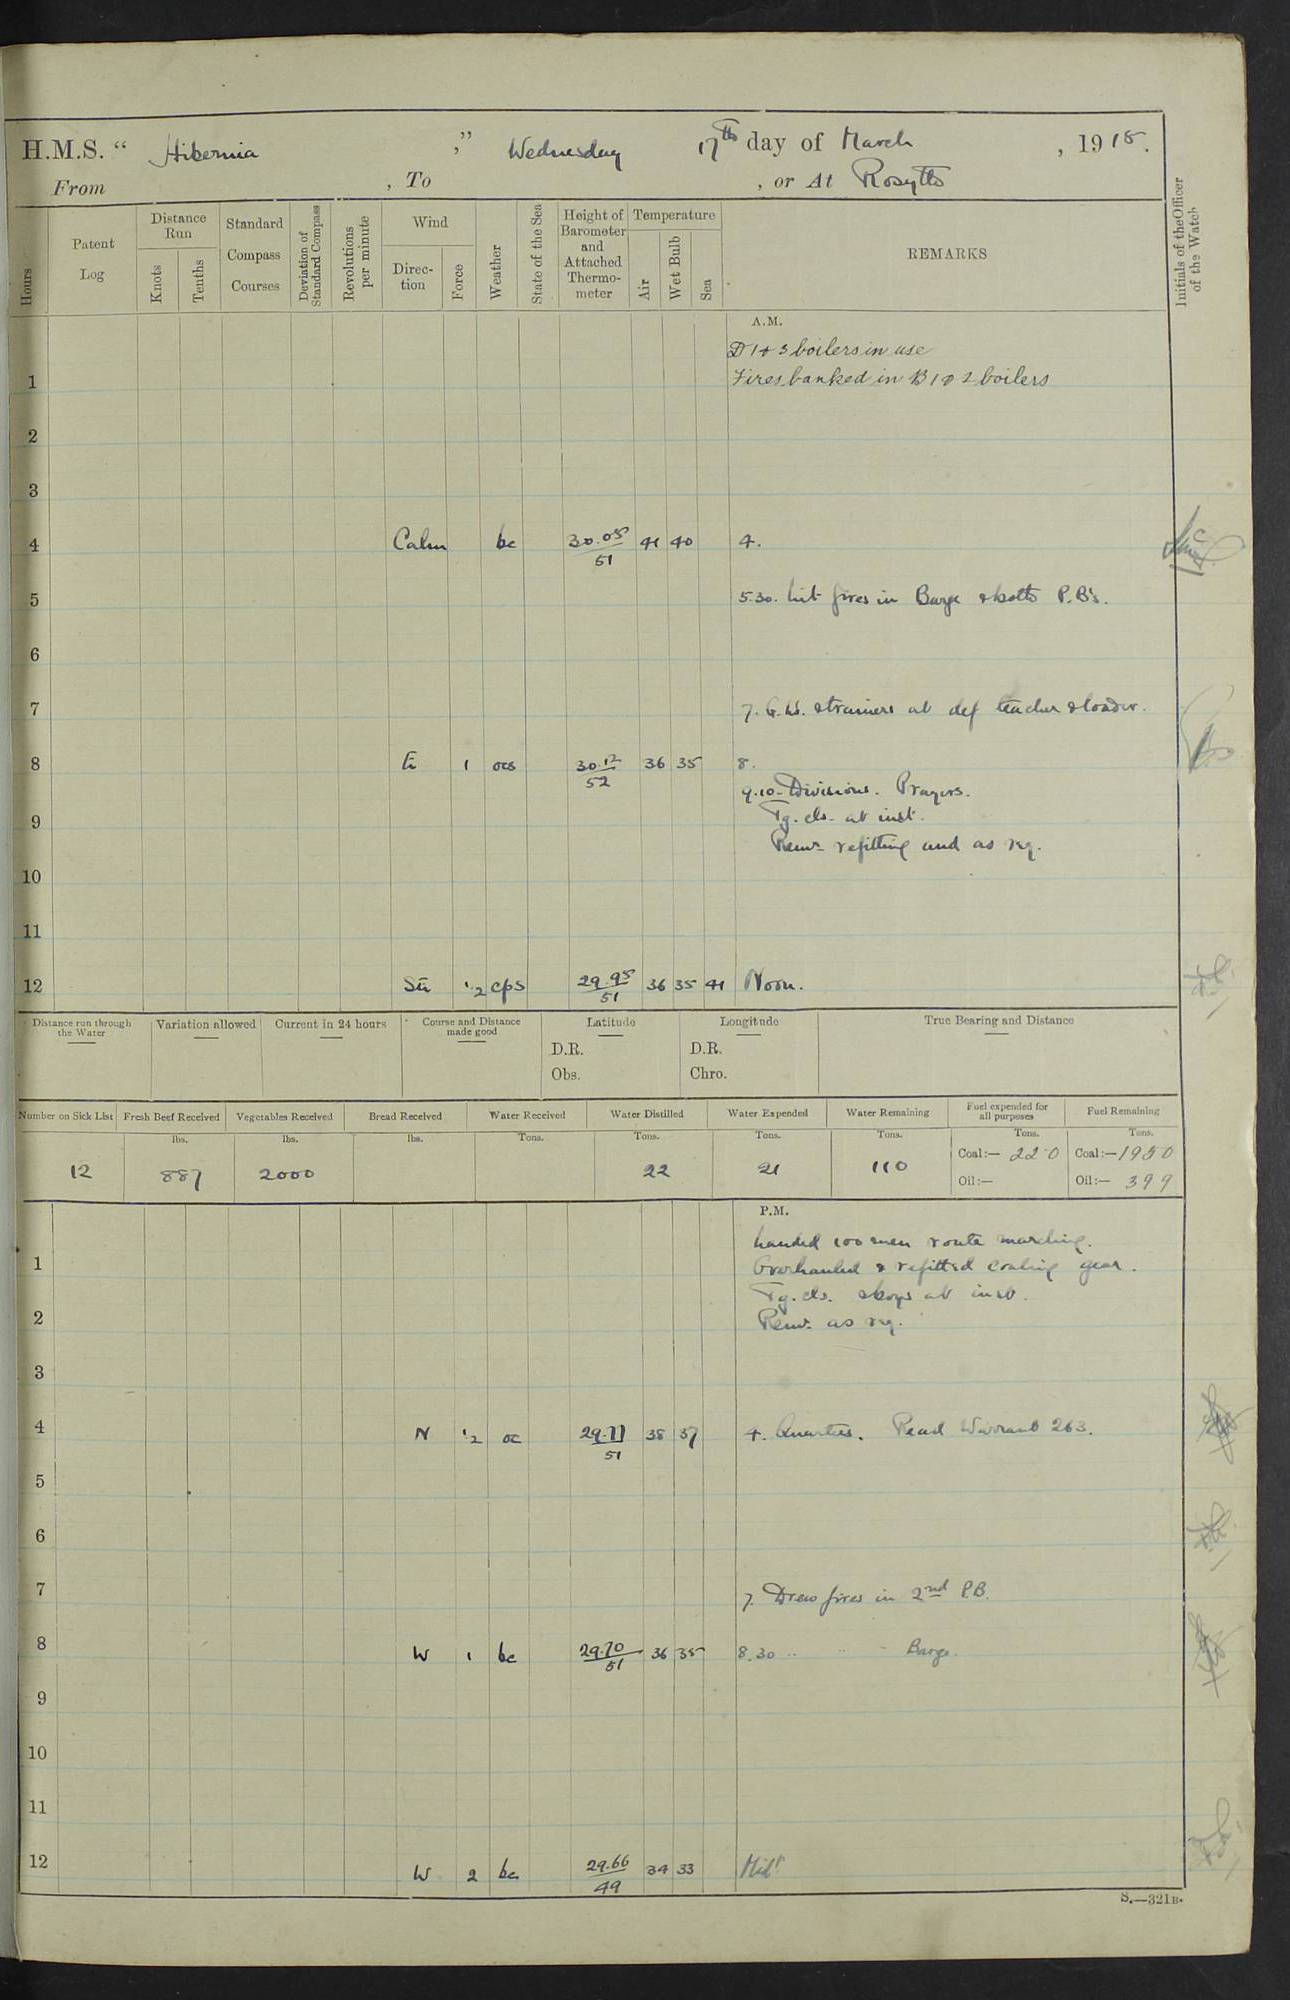 H.M.S. “ Hibernia ,” Wednesday 17th day of March , 1915.
From , To , or At Rosyth
Hours
Patent Log
Distance Run
Knots
Tenths
Standard Compass Courses
Deviation of Standard Compass
Revolutions per minute
Wind
Direction
Force
Weather
State of the Sea
Height of Barometer and Attached Thermometer
Temperature
Air
Wet Bulb
Sea
REMARKS
Initials of the Officer of the Watch
A.M.
D 1 & 3 boilers in use
1 Fires banked in B 1 & 2 boilers
2
3
4 Calm bc 30.05 51 41 40 4.
5 5.30. Lit fires in Barge & both P.B's.
6
7 7. G.Ls. & trainers at def teacher & loader.
8 E 1 ocs 30.12 52 36 35 8.
9.10 Divisions. Prayers.
9 Tg. cls. at inst.
Remr refitting and as req.
10
11
12 SE 1.2 cps 29.95 51 36 35 41 Noon.
Distance run through the Water
Variation allowed
Current in 24 hours
Course and Distance made good
Latitude
D.R.
Obs.
Longitude
D.R.
Chro.
True Bearing and Distance
Number on Sick List
Fresh Beef Received
Vegetables Received
Bread Received
Water Received
Water Distilled
Water Expended
Water Remaining
Fuel expended for all purposes
Fuel Remaining
lbs. lbs. lbs. Tons. Tons. Tons. Tons. Tons. Tons.
12 887 2000 22 21 110 Coal:— 22.0 Coal:— 1950
Oil:— Oil:— 399
P.M.
Landed 100 men route marching.
1 Overhauled & refitted coaling gear.
Tg. cls. & boys at inst.
2 Remr as req.
3
4 N 1.2 oc 29.77 51 38 37 4. Quarters. Read Warrant 263.
5
6
7 7. Drew fires in 2nd P.B.
8 W 1 bc 29.70 51 36 35 8.30 " " " Barge.
9
10
11
12 W 2 bc 29.66 49 34 33 Midt
S.—321B.